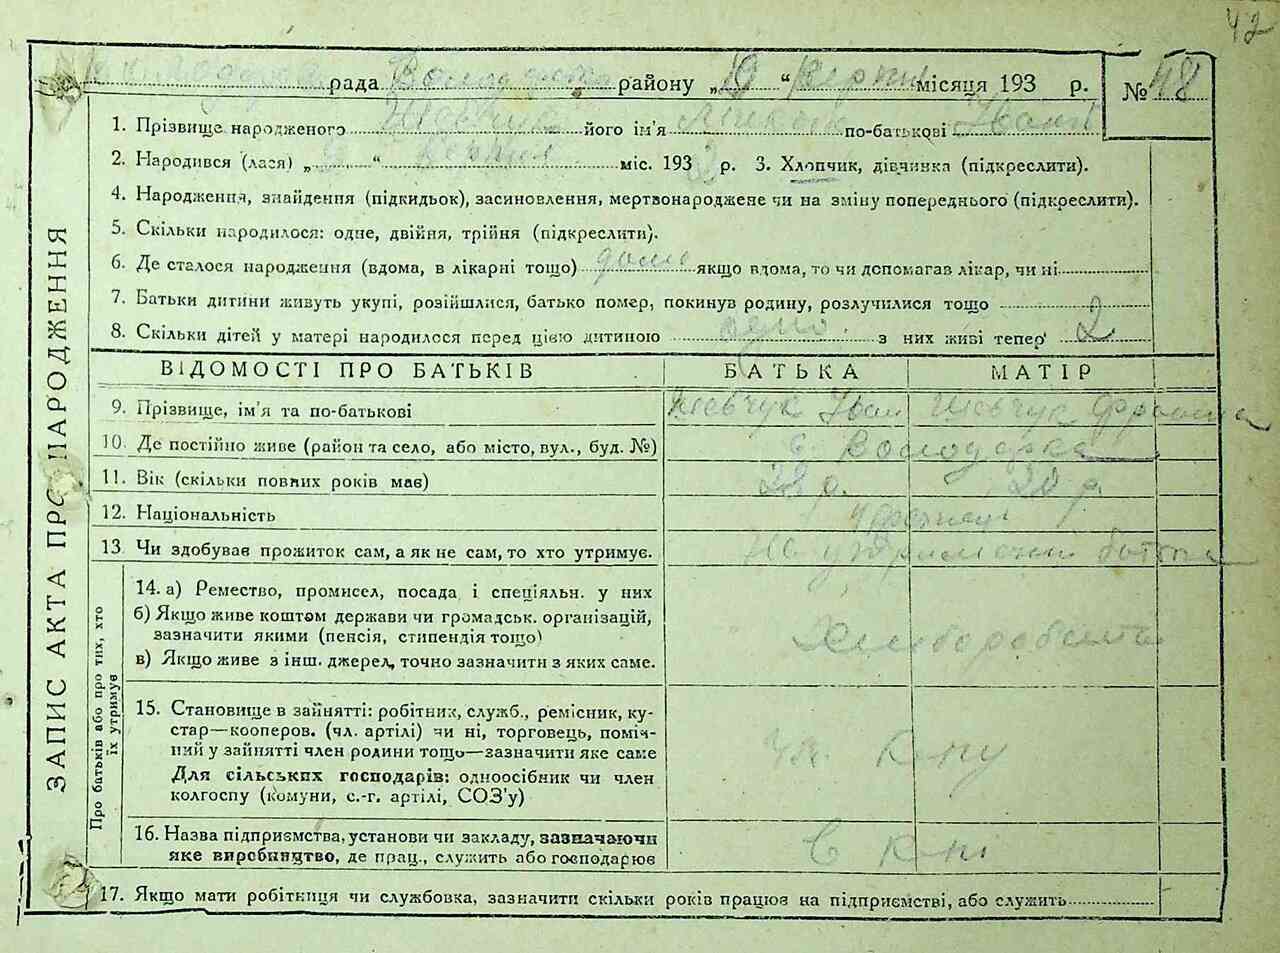 42
рада Володарського району „19“ Серпня місяця 193 р. № 48
1. Прізвище народженого Шевчук його ім'я Микола по-батькові Іван
2. Народився (лася) „ “ Серпня міс. 193 р. 3. Хлопчик, дівчинка (підкреслити).
4. Народження, знайдення (підкидьок), засиновлення, мертвонароджене чи на зміну попереднього (підкреслити).
5. Скільки народилося: одне, двійня, трійня (підкреслити).
6. Де сталося народження (вдома, в лікарні тощо) дома якщо вдома, то чи допомагав лікар, чи ні
7. Батьки дитини живуть укупі, розійшлися, батько помер, покинув родину, розлучилися тощо
8. Скільки дітей у матері народилося перед цією дитиною одно з них живі тепер 2
ЗАПИС АКТА ПРО НАРОДЖЕННЯ
ВІДОМОСТІ ПРО БАТЬКІВ БАТЬКА МАТІР
9. Прізвище, ім'я та по-батькові Шевчук Іван Шевчук
10. Де постійно живе (район та село, або місто, вул., буд. №) с Володарка
11. Вік (скільки повних років має) 28 р. 28 р.
12. Національність Українці
13. Чи здобував прожиток сам, а як не сам, то хто утримує. На утриманні батька
Про батьків або про тих, хто їх утримує
14. а) Ремество, промисел, посада і спеціяльн. у них
б) Якщо живе коштом держави чи громадськ. організацій,
зазначити якими (пенсія, стипендія тощо)
в) Якщо живе з інш. джерел, точно зазначити з яких саме.
15. Становище в зайнятті: робітник, служб., ремісник, ку-
стар—кооперов. (чл. артілі) чи ні, торговець, поміч-
ний у зайнятті член родини тощо—зазначити яке саме
Для сільських господарів: одноосібник чи член
колгоспу (комуни, с.-г. артілі, СОЗ'у)
16. Назва підприємства, установи чи закладу, зазначаючи
яке виробництво, де прац., служить або господарює
17. Якщо мати робітниця чи службовка, зазначити скільки років працює на підприємстві, або служить